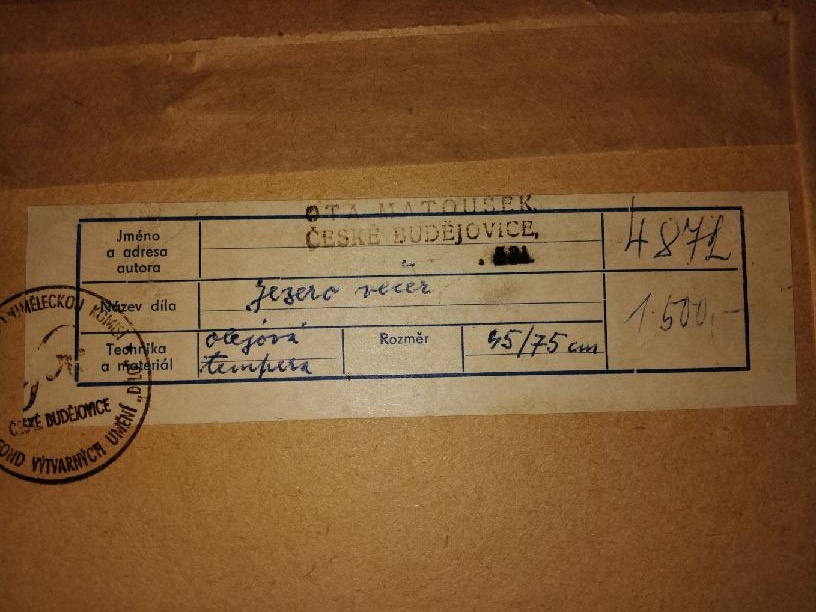 OTA MATOUŠEK,
ČESKÉ BUDĚJOVICE,
Jméno
a adresa
autora
4872
Název díla
Jezero večer
1.500,-
Technika
a materiál
olejová
tempera
Rozměr
45/75 cm
UMĚLECKOU KOMISI
ČESKÉ BUDĚJOVICE
FOND VÝTVARNÝCH UMĚNÍ „DÍLO"